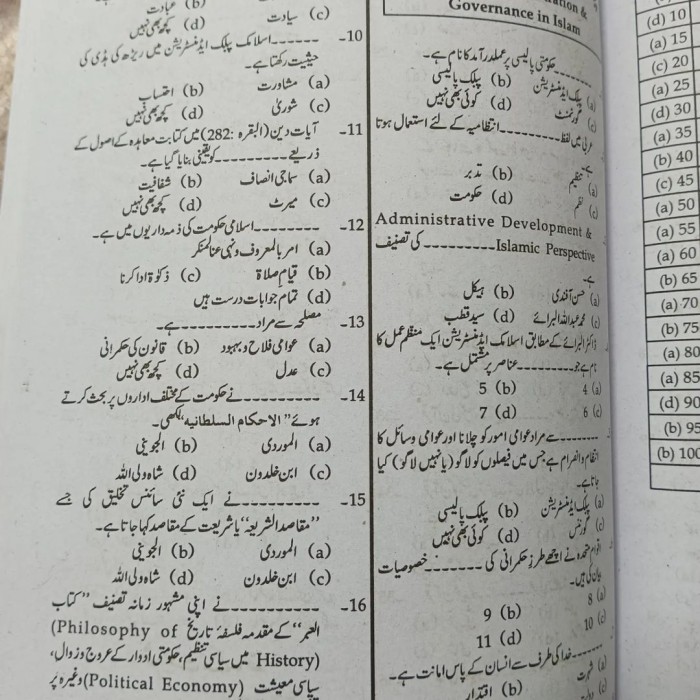 Governance in Islam
۔۔۔۔۔۔حکومتی پالیسی پر عملدرآمد کا نام ہے۔
(a) پبلک ایڈمنسٹریشن (b) پبلک پالیسی
(c) گورنمنٹ (d) کوئی بھی نہیں
عربی میں لفظ۔۔۔۔۔۔۔۔۔انتظامیہ کے لئے استعمال ہوتا
ہے۔
(a) تنظیم (b) تدبر
(c) نظم (d) حکومت
Administrative Development &
Islamic Perspective۔۔۔۔۔۔۔۔۔کی تصنیف
ہے۔
(a) حسن آفندی (b) ہیکل
(c) محمد عبداللہ البرائے (d) سید قطب
ڈاکٹر البرائے کے مطابق اسلامک ایڈمنسٹریشن ایک منظم عمل کا
نام ہے جو۔۔۔۔۔۔۔۔عناصر پر مشتمل ہے۔
(a) 4 (b) 5
(c) 6 (d) 7
۔۔۔۔۔۔سے مراد عوامی امور کو چلانا اور عوامی وسائل کا
انتظام و انصرام ہے جس میں فیصلوں کو لاگو (یا نہیں لاگو) کیا
جاتا ہے۔
(a) پبلک ایڈمنسٹریشن (b) پبلک پالیسی
(c) گورننس (d) کوئی بھی نہیں
اقوام متحدہ نے اچھے طرز حکمرانی کی ۔۔۔۔۔۔۔خصوصیات
بیان کی ہیں۔
(a) 8 (b) 9
(c) 10 (d) 11
۔۔۔۔۔۔خدا کی طرف سے انسان کے پاس امانت ہے۔
(a) شہرت (b) اقتدار
(b) عبادت
(c) سیادت (d) کچھ بھی نہیں
10- ۔۔۔۔۔۔اسلامک پبلک ایڈمنسٹریشن میں ریڑھ کی ہڈی کی
حیثیت رکھتا ہے۔
(a) مشاورت (b) احتساب
(c) شوریٰ (d) کچھ بھی نہیں
11- آیات دین (البقرہ :282) میں کتابت معاہدہ کے اصول کے
ذریعے ۔۔۔۔۔۔۔۔۔کو یقینی بنایا گیا ہے۔
(a) سماجی انصاف (b) شفافیت
(c) میرٹ (d) کچھ بھی نہیں
12- ۔۔۔۔۔۔۔۔اسلامی حکومت کی ذمہ داریوں میں ہے۔
(a) امر بالمعروف و نہی عن المنکر
(b) قیام صلاۃ (c) زکوٰۃ ادا کرنا
(d) تمام جوابات درست ہیں
13- مصلحہ سے مراد۔۔۔۔۔۔۔۔۔ہے۔
(a) عوامی فلاح و بہبود (b) قانون کی حکمرانی
(c) عدل (d) کچھ بھی نہیں
14- ۔۔۔۔۔۔۔۔۔نے حکومت کے مختلف اداروں پر بحث کرتے
ہوئے ”الاحکام السلطانیہ“ لکھی۔
(a) الموردی (b) الجوینی
(c) ابن خلدون (d) شاہ ولی اللہ
15- ۔۔۔۔۔۔۔۔۔نے ایک نئی سائنس تخلیق کی جسے
”مقاصد الشریعہ“ یا شریعت کے مقاصد کہا جاتا ہے۔
(a) الموردی (b) الجوینی
(c) ابن خلدون (d) شاہ ولی اللہ
16- ۔۔۔۔۔۔۔۔۔نے اپنی مشہور زمانہ تصنیف ”کتاب
العبر“ کے مقدمہ فلسفۂ تاریخ (Philosophy of
History) میں سیاسی تنظیم، حکومتی ادوار کے عروج و زوال،
سیاسی معیشت (Political Economy) وغیرہ پر
(d) 10
(a) 15
(c) 20
(a) 25
(d) 30
(a) 35
(b) 40
(c) 45
(a) 50
(a) 55
(a) 60
(b) 65
(a) 70
(b) 75
(a) 80
(a) 85
(d) 90
(b) 95
(b) 100